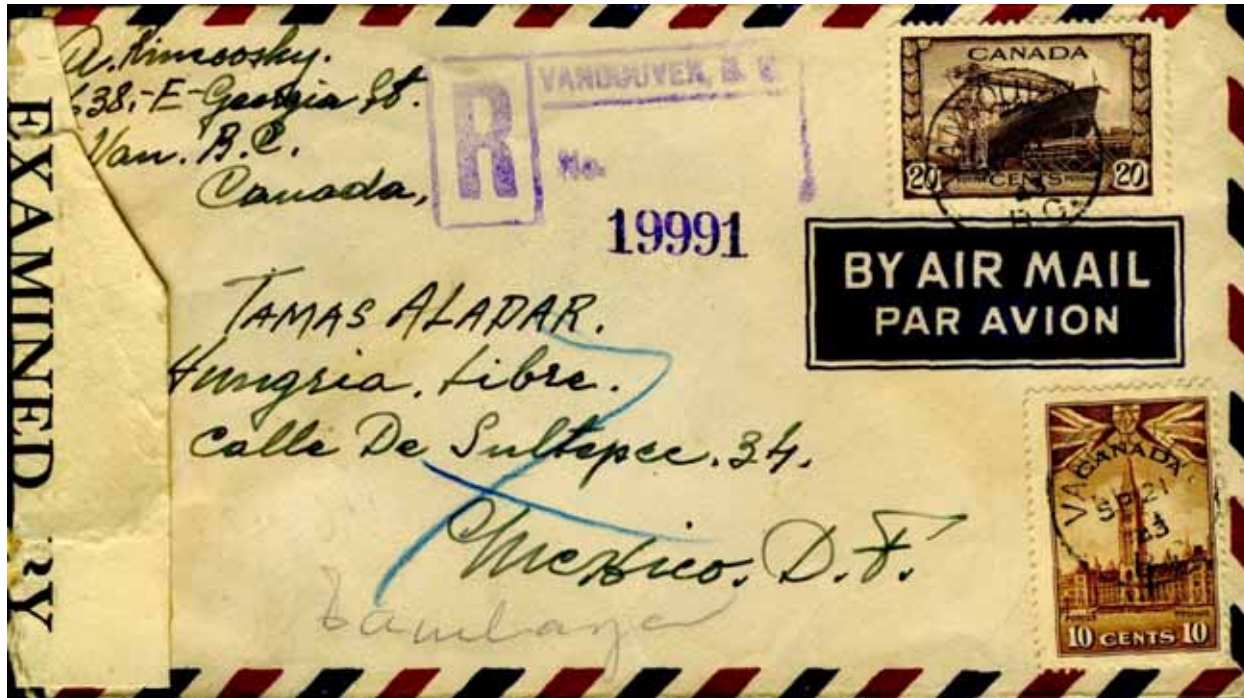 638,-E-Georgia St.
Van. B.C.
Canada,
R
VANCOUVER, B. C.
No.
19991
CANADA
20 CENTS 20
B.C.
BY AIR MAIL
PAR AVION
TAMAS ALADAR.
Hungria. Libre.
Calle De Sultepec. 34.
Mexico. D. F.
CANADA
SP 21
43
10 CENTS 10
EXAMINED